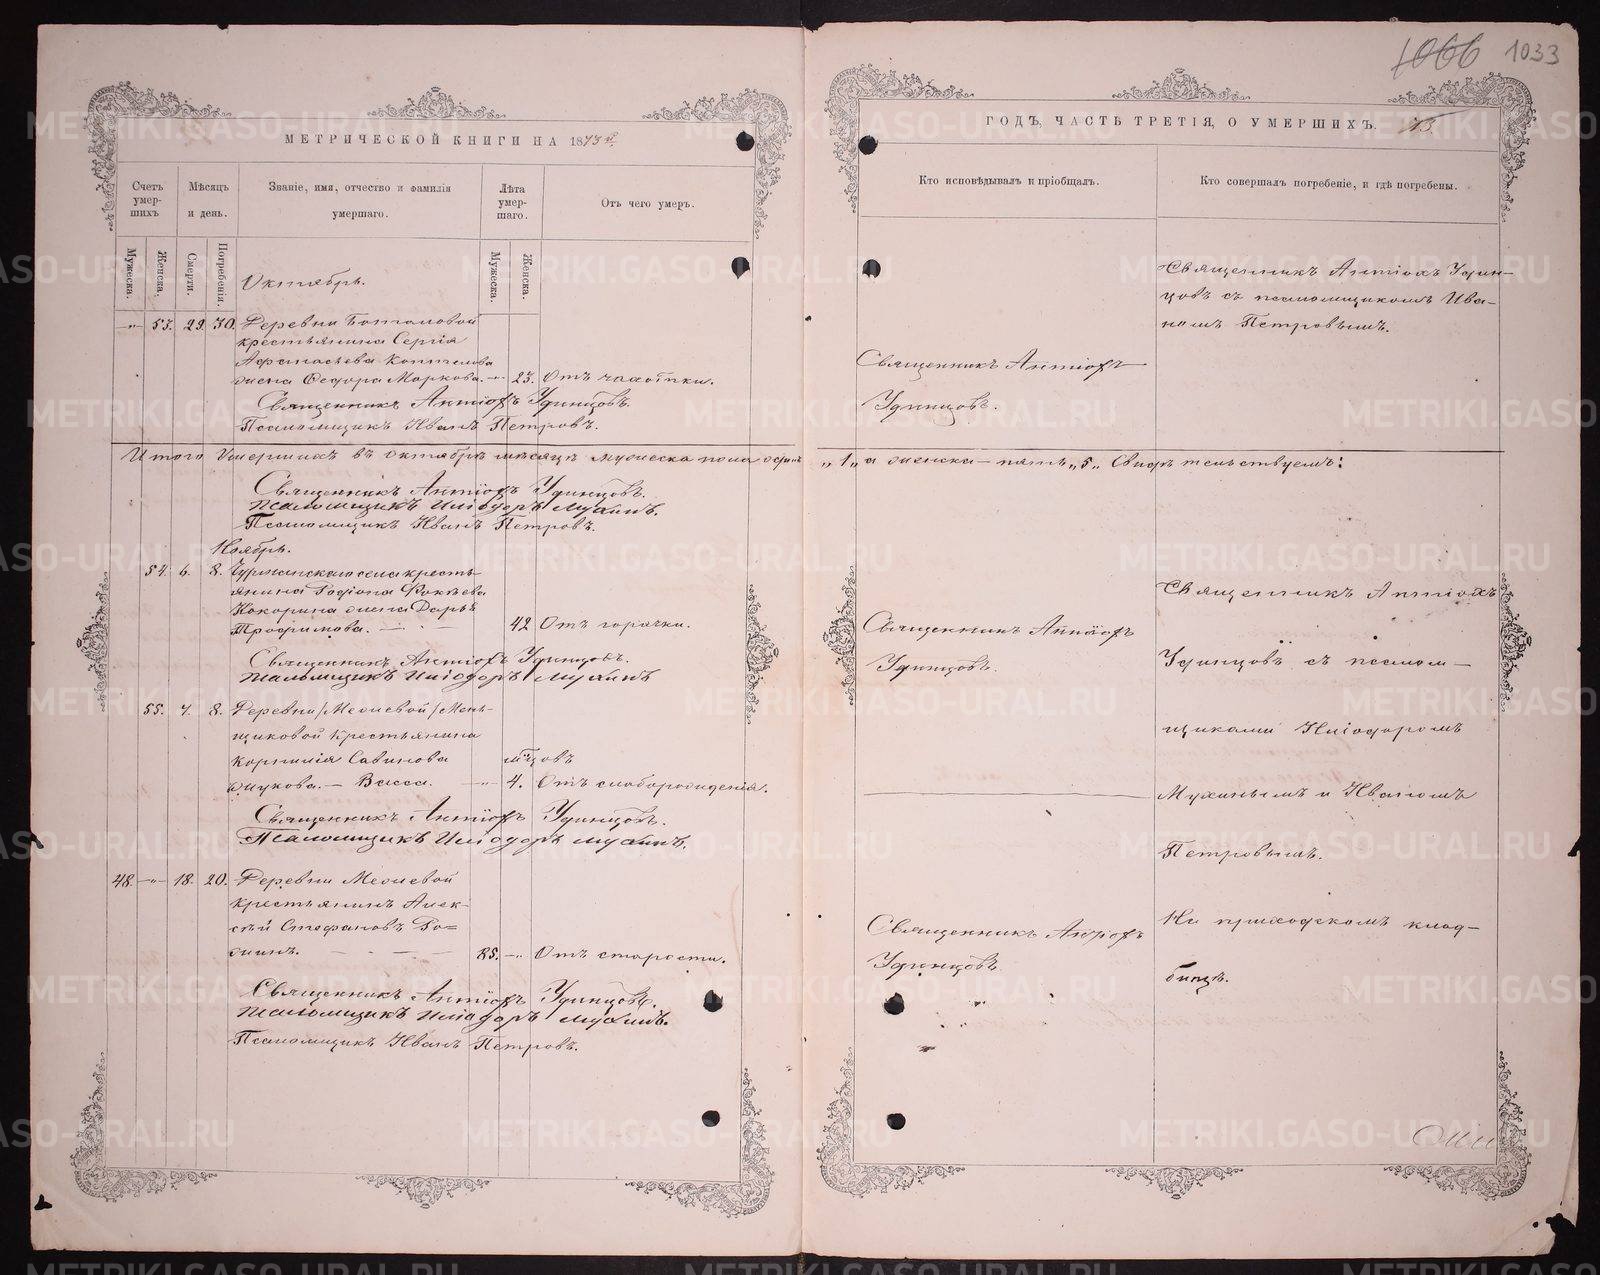 1066 1033
МЕТРИЧЕСКОЙ КНИГИ НА 1873й
Счетъ умер-шихъ
Мѣсяцъ и день.
Званіе, имя, отчество и фамилія умершаго.
Лѣта умер-шаго.
Отъ чего умеръ.
Мужеска.
Женска.
Смерти.
Погребенія.
Мужеска.
Женска.
Октябрь.
53. 29. 30. Деревни
крестьянина Сергія
Афанасьева
жена Ѳедора Маркова. 23. Отъ чахотки.
Священникъ Антіохъ Удинцовъ.
Псаломщикъ Иванъ Петровъ.
Итого умершихъ въ октябрѣ мѣсяцѣ мужеска пола одинъ
Священникъ Антіохъ Удинцовъ.
Псаломщикъ Иліодоръ Мухинъ.
Псаломщикъ Иванъ Петровъ.
Ноябрь.
54. 6. 8. села кресть-
янина Родіона Фокѣева
Кокорина жена Дарья
Трофимова. 42 Отъ горячки.
Священникъ Антіохъ Удинцовъ.
Псаломщикъ Иліодоръ Мухинъ
55. 7. 8. Деревни /Межевой/ Мень-
щиковой крестьянина
Корнилія Савинова мѣсяцовъ
Жукова. Васса. 4. Отъ слаборожденія.
Священникъ Антіохъ Удинцовъ.
Псаломщикъ Иліодоръ Мухинъ.
48. 18. 20. Деревни Межевой
крестьянинъ Алек-
сѣй Стефановъ Бо-
жинъ. 85. Отъ старости.
Священникъ Антіохъ Удинцовъ.
Псаломщикъ Иліодоръ Мухинъ.
Псаломщикъ Иванъ Петровъ.
ГОДЪ, ЧАСТЬ ТРЕТІЯ, О УМЕРШИХЪ.
Кто исповѣдывалъ и пріобщалъ.
Кто совершалъ погребеніе, и гдѣ погребены.
Священникъ Антіохъ Удин-
цовъ съ псаломщикомъ Ива-
номъ Петровымъ.
Священникъ Антіохъ
Удинцовъ.
„1„ а женска – пять „5„ Свидѣтельствуемъ:
Священникъ Антіохъ
Священникъ Антіохъ
Удинцовъ.
Удинцовъ съ псалом-
щиками Иліодоромъ
Мухинымъ и Иваномъ
Петровымъ.
Священникъ Антіохъ
Удинцовъ
На приходскомъ клад-
бищѣ.
METRIKI.GASO-URAL.RU